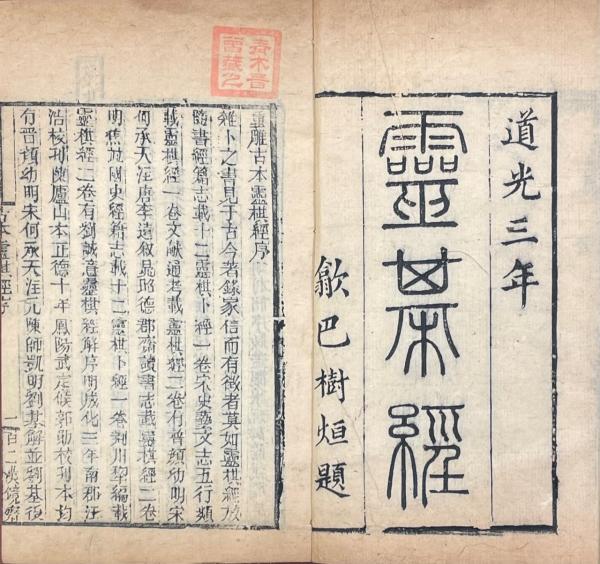 道光三年
靈棊經
歙巴樹烜題
重雕古本靈棋經序
雜卜之書見于古今著錄家信而有徵者莫如靈棋經攷
隋書經籍志載十二靈棋卜經一卷宋史藝文志五行類
載靈棋經一卷文獻通考載靈棋經二卷有晉顔幼明宋
何承天注唐李遠敘晁邱德郡齋讀書志載靈棋經二卷
明焦竑國史經籍志載十二靈棋卜經一卷荆川稗編載
靈棋經二卷有劉誠意靈棋經解序明成化三年南郡汪
浩校刊廬山本正德十年鳳陽武定侯郭勛校刊本均
有晉顔幼明宋何承天注元陳師凱明劉基解並劉基後
古本靈棋經序 一 百二漢鏡齋